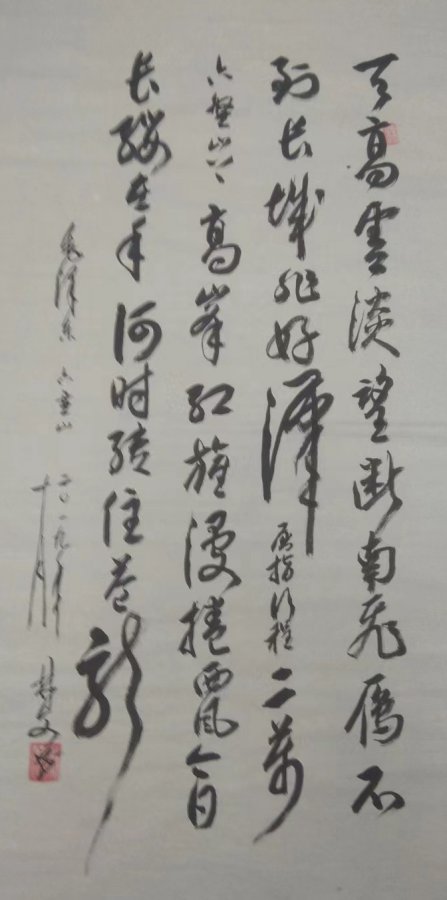 天高雲淡望断南飛雁不
到长城非好漢屈指行程二萬
六盤山上高峯红旗漫捲西風今日
长缨在手何时缚住苍龙
毛泽东六盘山二〇一九年十月